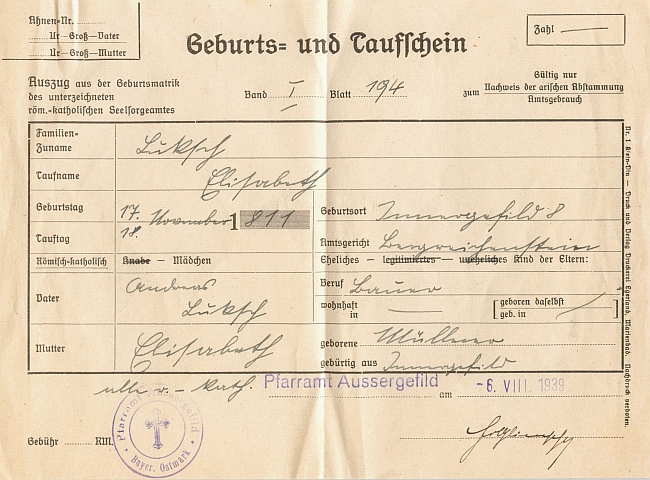 Ahnen-Nr.
Ur-Groß-Vater
Ur-Groß-Mutter
Geburts- und Taufschein
Zahl
Auszug aus der Geburtsmatrik
des unterzeichneten
röm.-katholischen Seelsorgeamtes
Band I Blatt 194
zum
Gültig nur
Nachweis der arischen Abstammung
Amtsgebrauch
Familien-
Zuname
Luksch
Taufname
Elisabeth
Geburtstag 17. November 1811
Tauftag 18.
Geburtsort Innergefild 8
Amtsgericht Bergreichenstein
Römisch-katholisch Knabe - Mädchen
Eheliches - legitimiertes - uneheliches Kind der Eltern:
Vater Andreas
Luksch
Beruf Bauer
wohnhaft
in
[geboren daselbst
geb. in]
Mutter Elisabeth
geborene Müllner
gebürtig aus Innergefild
alle r.-kath.
Pfarramt Aussergefild am -6. VIII. 1939
Gebühr RM.
Pfarramt Aussergefild
Bayer. Ostmark
Nr. 1 Klein-Din — Druck und Verlag Druckerei Egerland, Marienbad. Nachdruck verboten.